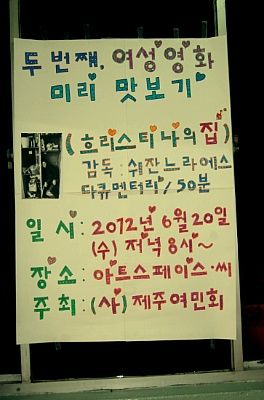 두번째, 여성영화
미리 맛보기
(흐리스티나의 집)
감독 : 쉬잔느 라에스
다큐멘터리/50분
일시 : 2012년 6월 20일
(수) 저녁 8시~
장소 : 아트스페이스·씨
주최 : (사) 제주여민회